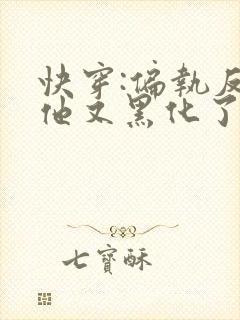 快穿:偏執反
他又黑化了
七寶酥